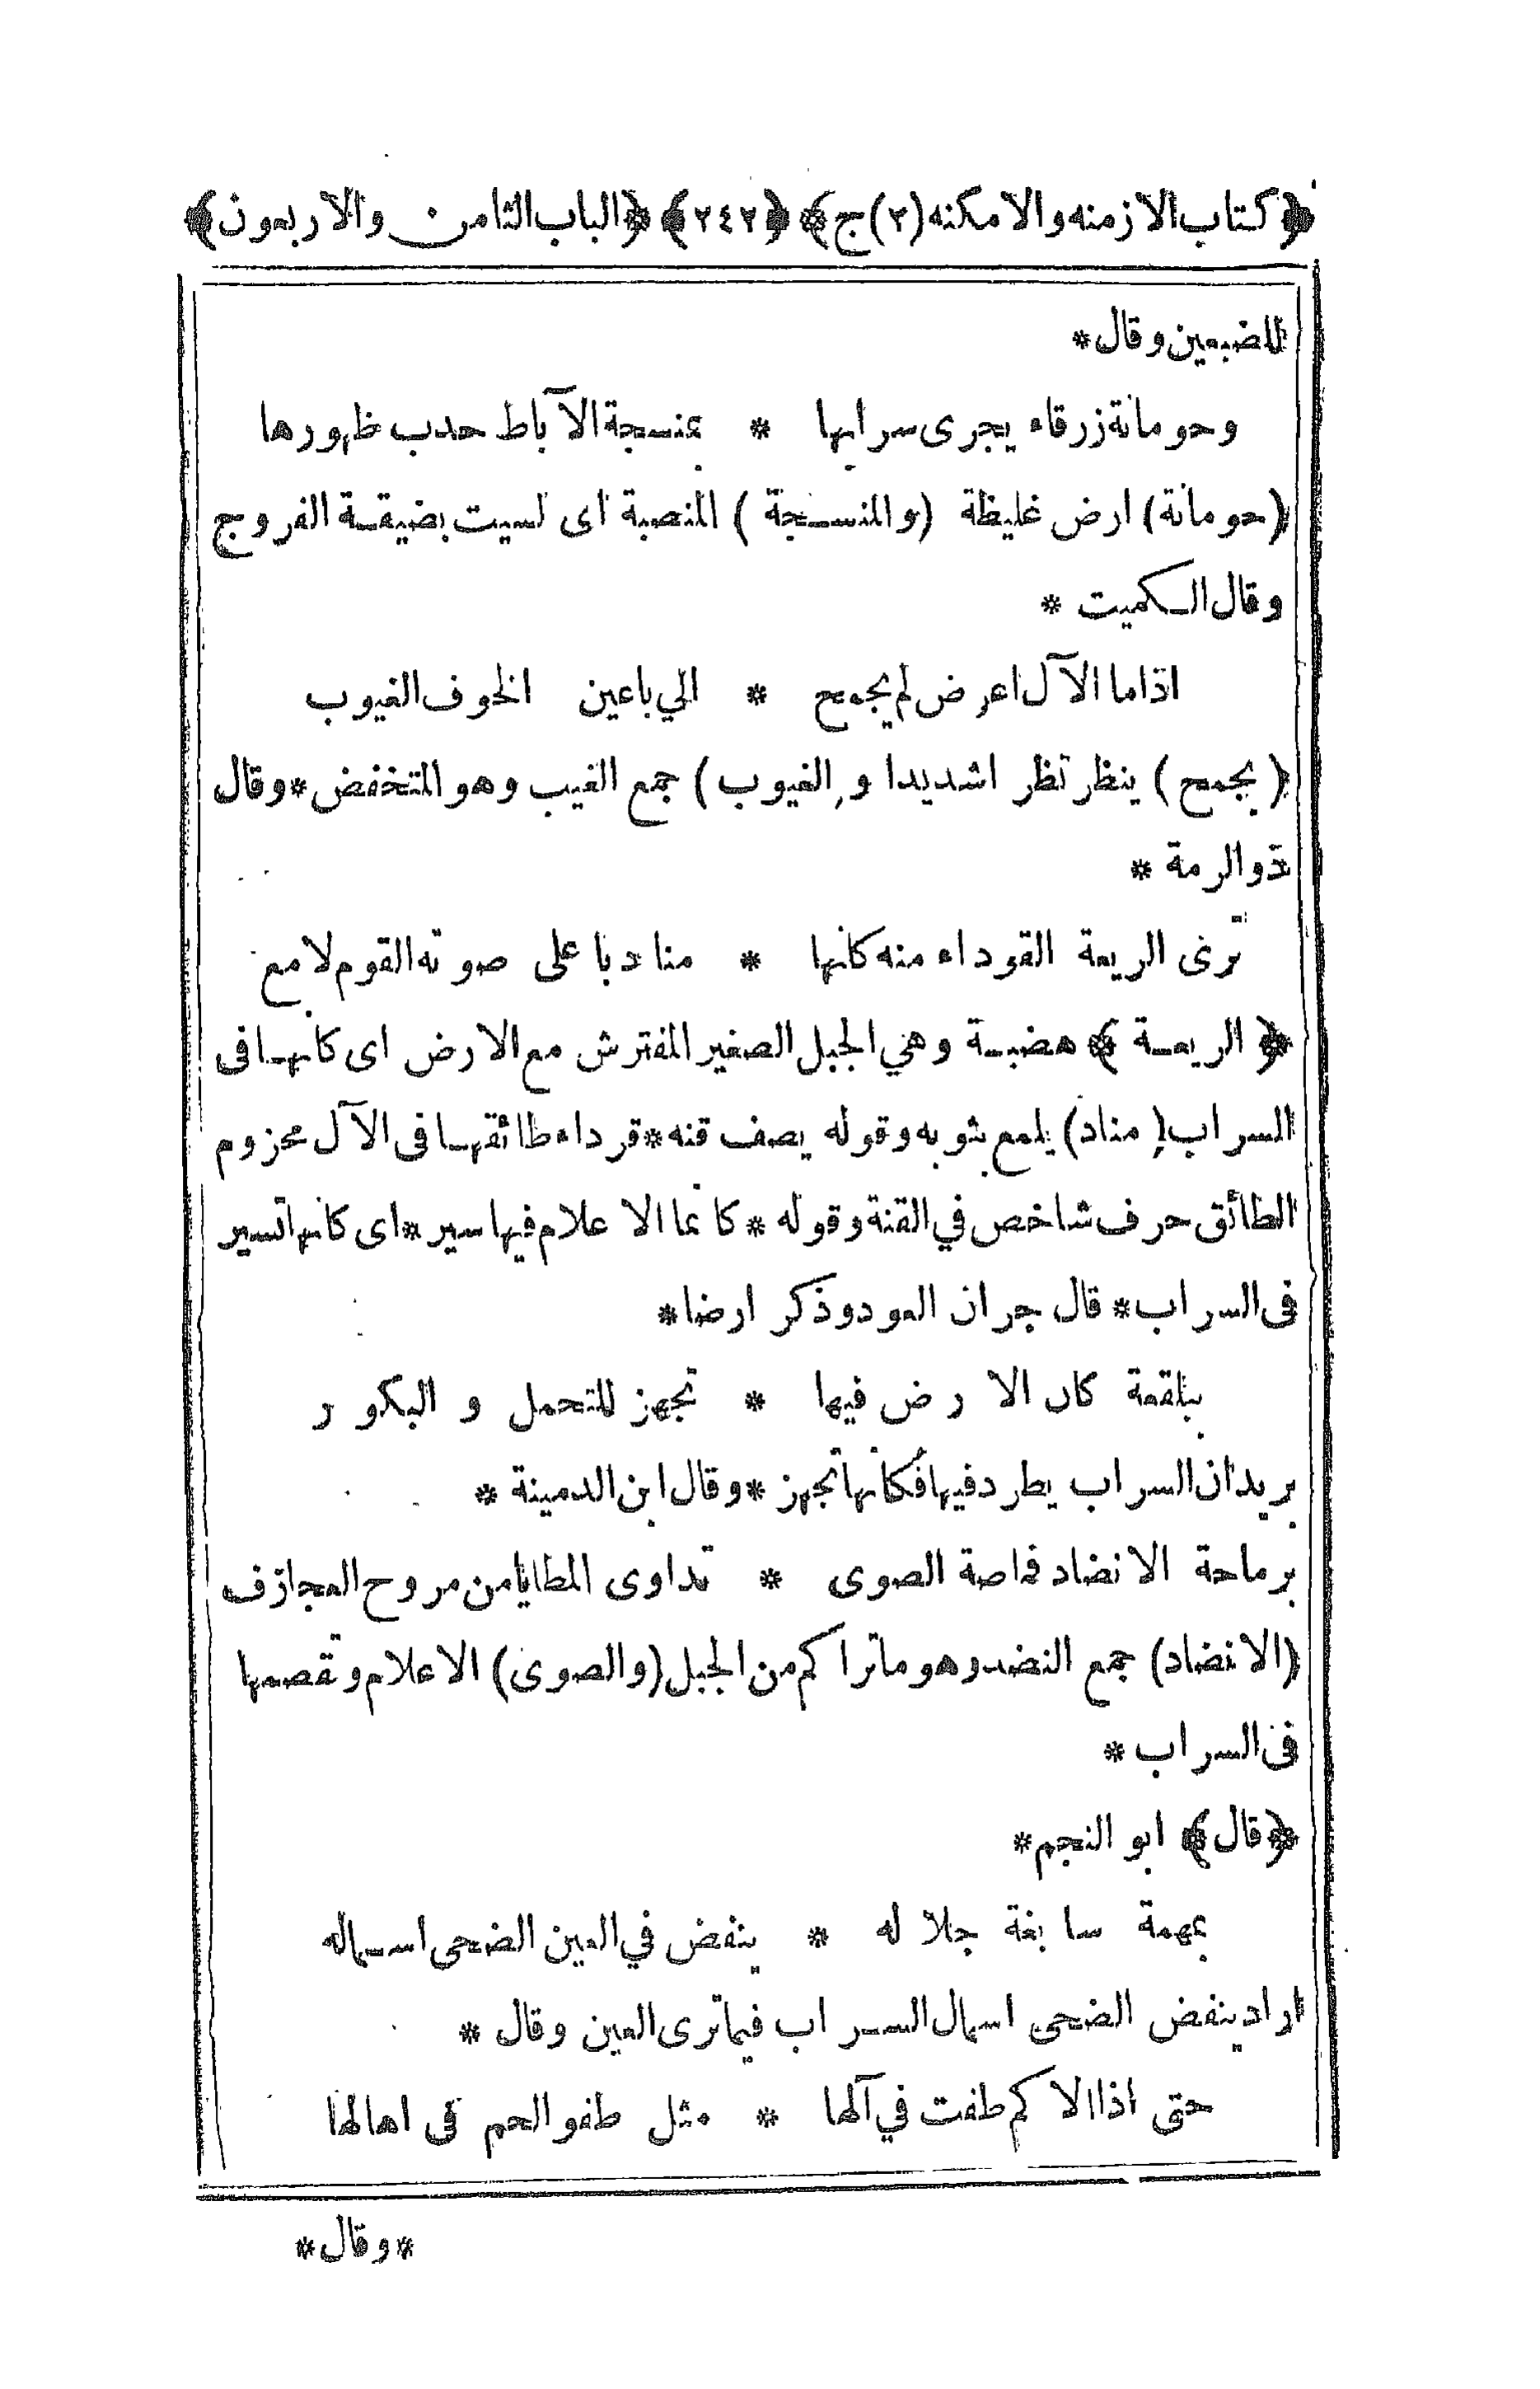 ﴿كتاب الازمنه والامكنه (٢) ج﴾ ﴿٢٤٢﴾ ﴿الباب الثامن والاربعون﴾
للضبعين وقال*
وحومانة زرقاء يجرى سرابها * بمنسجة الآباط حدب ظهورها
(حومانة) ارض غليظة (والمنسجة) المنصبة اى لسيت بضيقة الفروج
وقال الكميت *
اذاما الآل اعرض لم يجمح * الي باعين الخوف الغيوب
(يجمح) ينظر نظر اشديدا و(الغيوب) جمع الغيب وهو المتخفض*وقال
ذوالرمة *
ترى الريعة القوداء منه كانها * مناد با على صوته القوم لامع
﴿الريعة﴾ هضبة وهي الجبل الصغير المفترش مع الارض اى كانها فى
السراب (مناد) يلمع بثوبه وقوله يصف قنه*قرداء طائقها فى الآل محزوم
الطائق حرف شاخص في القنة وقوله *كانما الاعلام فيها سير*اى كانها تسير
فى السراب* قال جران العود وذكر ارضا*
ببلقعة كان الارض فيها * تجهز للتحمل والبكور
يريد ان السراب يطرد فيها فكانها تجهز *وقال ابن الدمينة *
برماحة الانضاد قماصة الصوى * تداوى المطايا من مروح العجارف
(الانضاد) جمع النضد وهو ماتراكم من الجبل (والصوى) الاعلام وتقصمها
فى السراب *
﴿قال﴾ ابو النجم*
بمهمة سابغة جلاله * ينفض في العين الضحى اسماله
اراد ينفض الضحى اسمال السراب فيماترى العين وقال *
حتى اذا الاكم طفت في آلها * مثل طفو الحم فى اهالها
*وقال*